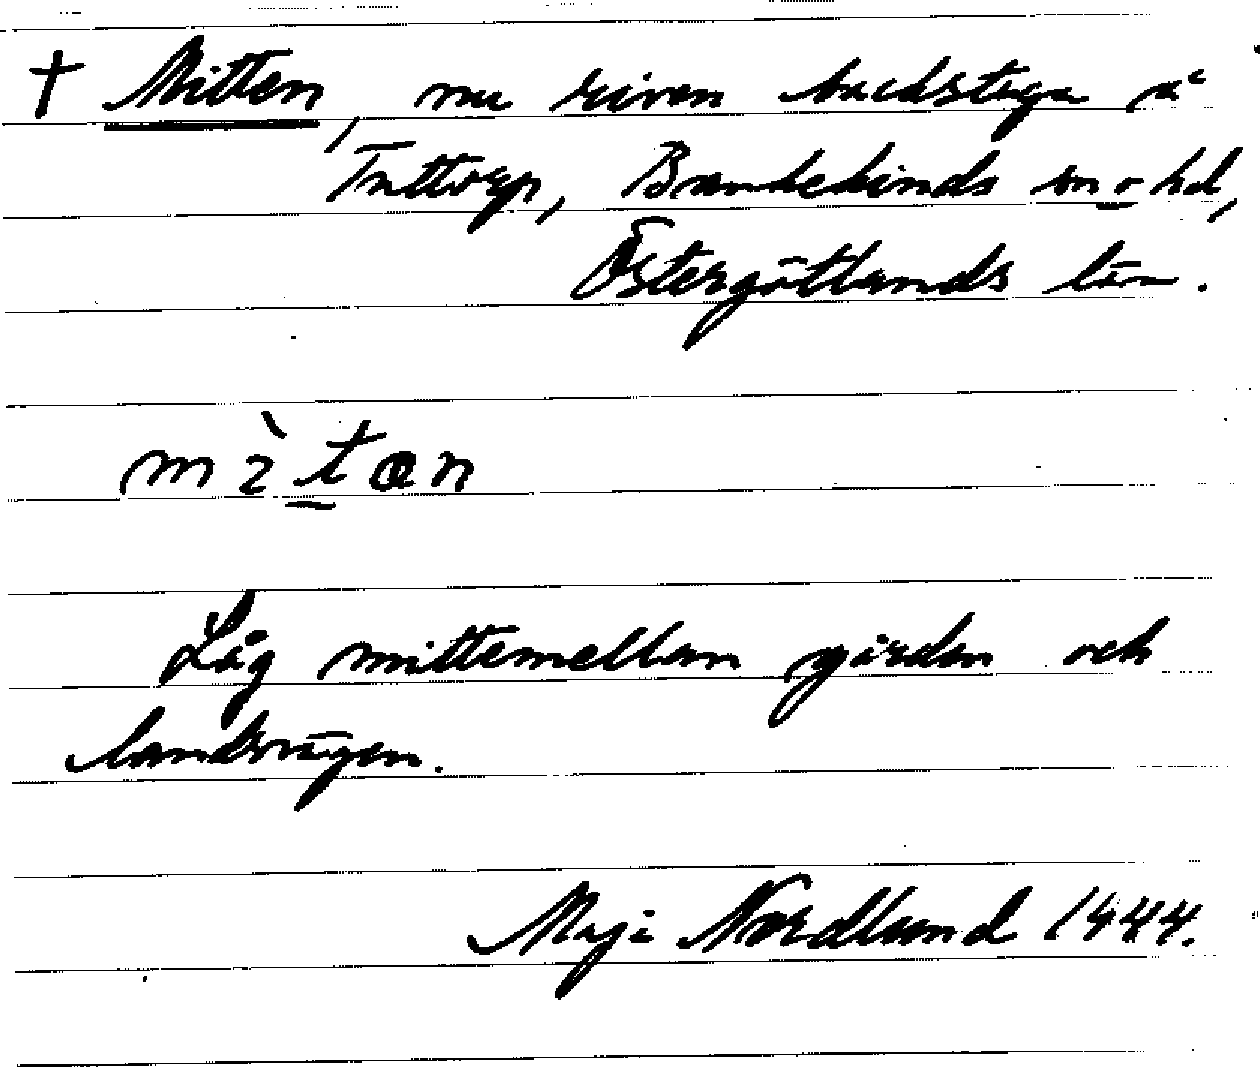 † Mitten, nu riven backstuga å
Tuttorp, Bankekinds sn o hd,
Östergötlands län.
mìtan
Låg mittemellan gården och
landsvägen.
Maja Nordlund 1944.